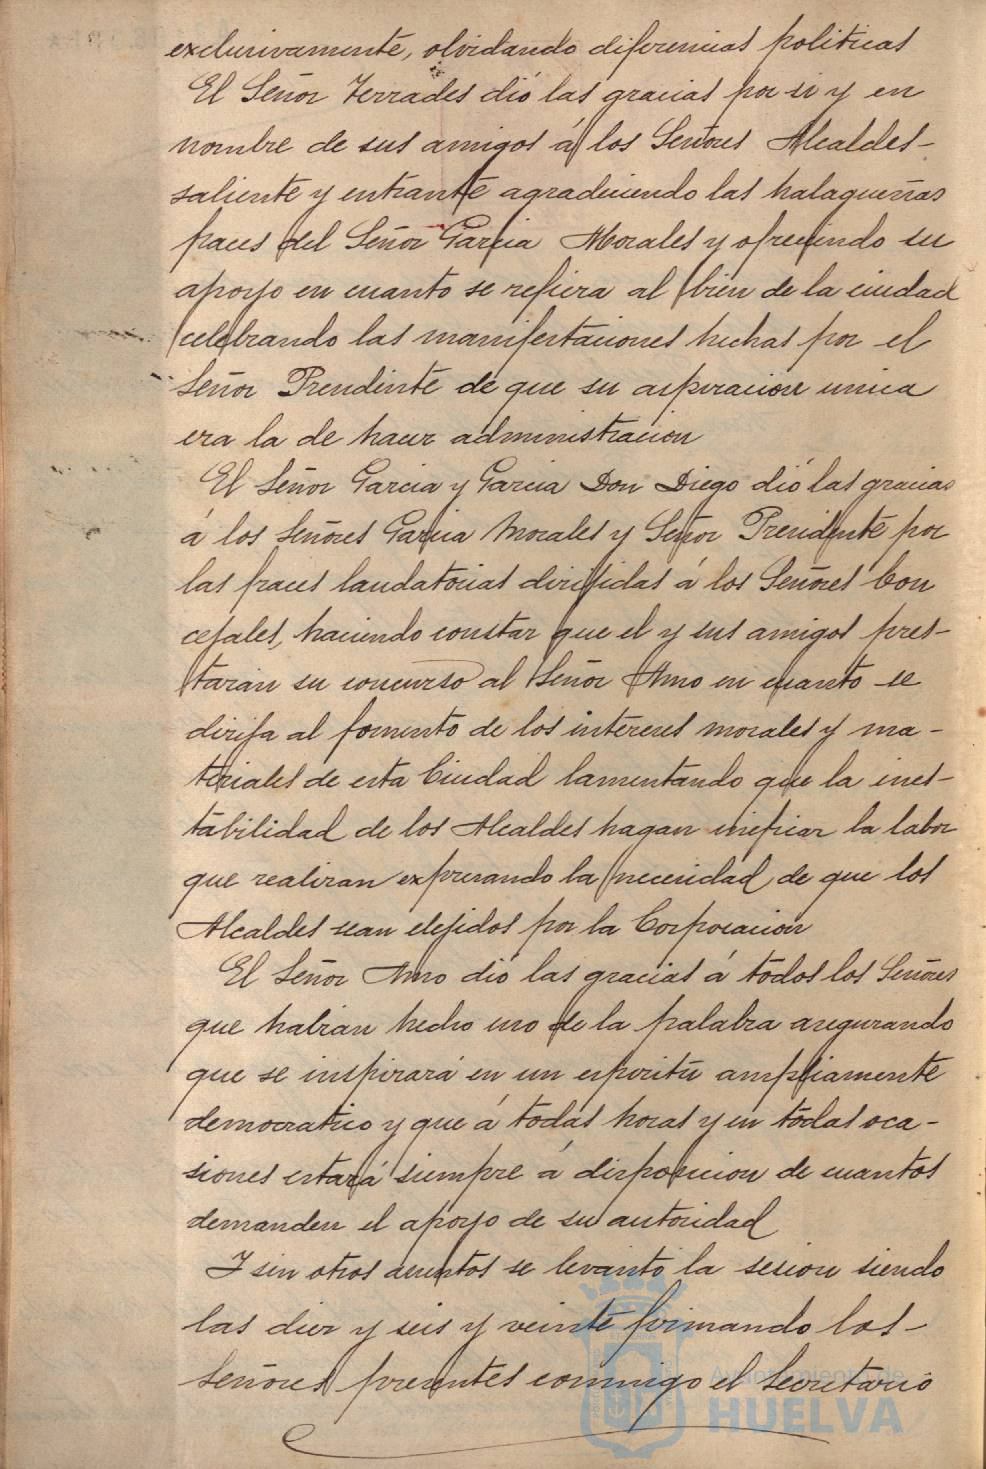 exclusivamente, olvidando diferencias politicas
El Señor Terrades dió las gracias por si y en
nombre de sus amigos á los Señores Alcaldes-
saliente y entrante agradeciendo las halagueñas
fraces del Señor Garcia Morales y ofreciendo su
apoyo en cuanto se refiera al bien de la ciudad
celebrando las manifestaciones hechas por el
Señor Presidente de que su aspiracion unica
era la de hacer administracion
El Señor Garcia y Garcia Don Diego dió las gracias
á los Señores Garcia Morales y Señor Presidente por
las fraces laudatorias dirijidas á los Señores Con
cejales, haciendo constar que el y sus amigos pres-
taran su concurso al Señor Amo en cuanto se
dirija al fomento de los intereses morales y ma-
teriales de esta Ciudad lamentando que la ines-
tabilidad de los Alcaldes hagan ineficaz la labor
que realizan expresando la necesidad de que los
Alcaldes sean elejidos por la Corporacion
El Señor Amo dió las gracias á todos los Señores
que habian hecho uso de la palabra asegurando
que se inspirará en un espiritu ampliamente
democratico y que á todas horas y en todas oca-
siones estará siempre á disposicion de cuantos
demanden el apoyo de su autoridad
Y sin otros asuntos se levanto la sesion siendo
las diez y seis y veinte firmando los-
Señores presentes conmigo el Secretario
Ayuntamiento de
HUELVA